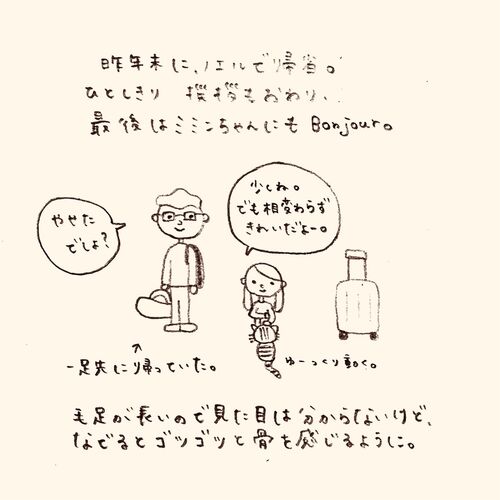 昨年末に、ノエルで帰省。
ひとしきり 挨拶もおわり、
最後はミミンちゃんにも Bonjour。
やせた
でしょ?
少しね。
でも相変わらず
きれいだよー。
↑
一足先に帰っていた。
ゆーっくり動く。
毛足が長いので見た目は分からないけど、
なでるとゴツゴツと骨を感じるように。